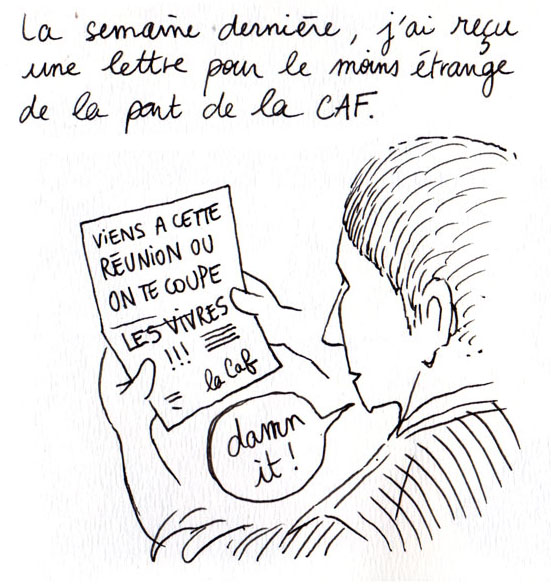 La semaine dernière, j'ai reçu
une lettre pour le moins étrange
de la part de la CAF.
ViENS A CETTE
RÉUNiON OU
ON TE COUPE
LES ViVRES
!!!
la Caf
damn
it !